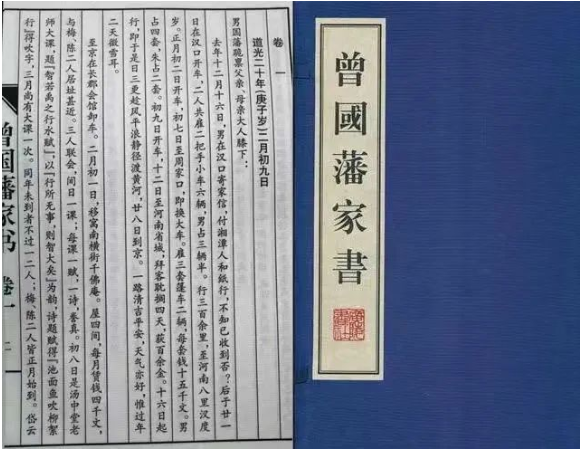 曾國藩家書
卷一
道光二十年(庚子岁)二月初九日
男国藩跪禀父亲、母亲大人膝下：
去年十二月十六日，男在汉口寄家信，付湘潭人和纸行，不知已收到否？后于廿一
日在汉口开车，二人共雇二把手小车六辆，男占三辆半。行三百余里，至河南八里汊度
岁。正月初二日开车，初七日至周家口，即换大车。雇三套篷车二辆，每套钱十五千文。男
占四套，朱占二套。初九日开车，十二日至河南省城，拜客耽搁四天，获百余金。十六日起
行，即于是日三更趁风平浪静径渡黄河，廿八日到京。一路清吉平安，天气亦好，惟过年
二天微雪耳。
至京在长郡会馆卸车。二月初一日，移寓南横街千佛庵。屋四间，每月赁钱四千文，
与梅、陈二人居址甚近。三人联会，间日一课；每课一赋，一诗，誊真。初八日是汤中堂老
师大课，题“智若禹之行水赋”，以“行所无事，则智大矣”为韵，诗题赋得“池面鱼吹柳絮
行”得吹字，三月尚有大课一次。同年未到者不过一二人；梅、陈二人皆正月始到。岱云
曾国藩家书 卷一